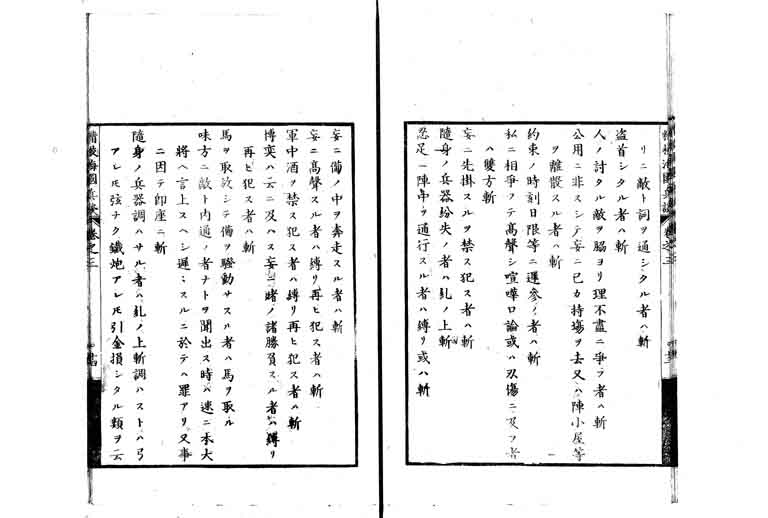 リニ敵ト詞ヲ通シタル者ハ斬
盗首シタル者ハ斬
人ノ討タル敵ヲ脇ヨリ理不盡ニ爭フ者ハ斬
公用ニ非スシテ妄ニ己カ持場ヲ去又ハ陣小屋等
ヲ離散スル者ハ斬
約束ノ時刻日限等ニ遲參ノ者ハ斬
私ニ相爭フテ髙聲シ喧嘩口論或ハ刄傷ニ及フ者
ハ雙方斬
妄ニ先掛スルヲ禁ス犯ス者ハ斬
隨身ノ兵器紛失ノ者ハ糺ノ上斬
忍足ニ陣中ヲ通行スル者ハ縛リ或ハ斬
妄ニ備ノ中ヲ奔走スル者ハ斬
妄ニ髙聲スル者ハ縛リ再ヒ犯ス者ハ斬
軍中酒ヲ禁ス犯ス者ハ縛リ再ヒ犯ス者ハ斬
博奕ハ云ニ及ハス妄ニ賭ノ諸勝負スル者ハ縛リ
再ヒ犯ス者ハ斬
馬ヲ取放シテ備ヲ騷動サスル者ハ馬ヲ取ル
味方ニ敵ト内通ノ者ナトヲ聞出ス時ハ速ニ本大
將ヘ言上スヘシ遲々スルニ於テハ罪アリ又事
ニ因テ即座ニ斬
隨身ノ兵器調ハサル者ハ糺ノ上斬調ハストハ弓
アレモ弦ナク鐵炮アレモ引金損シタル類ヲ云
海國兵談
卷之三